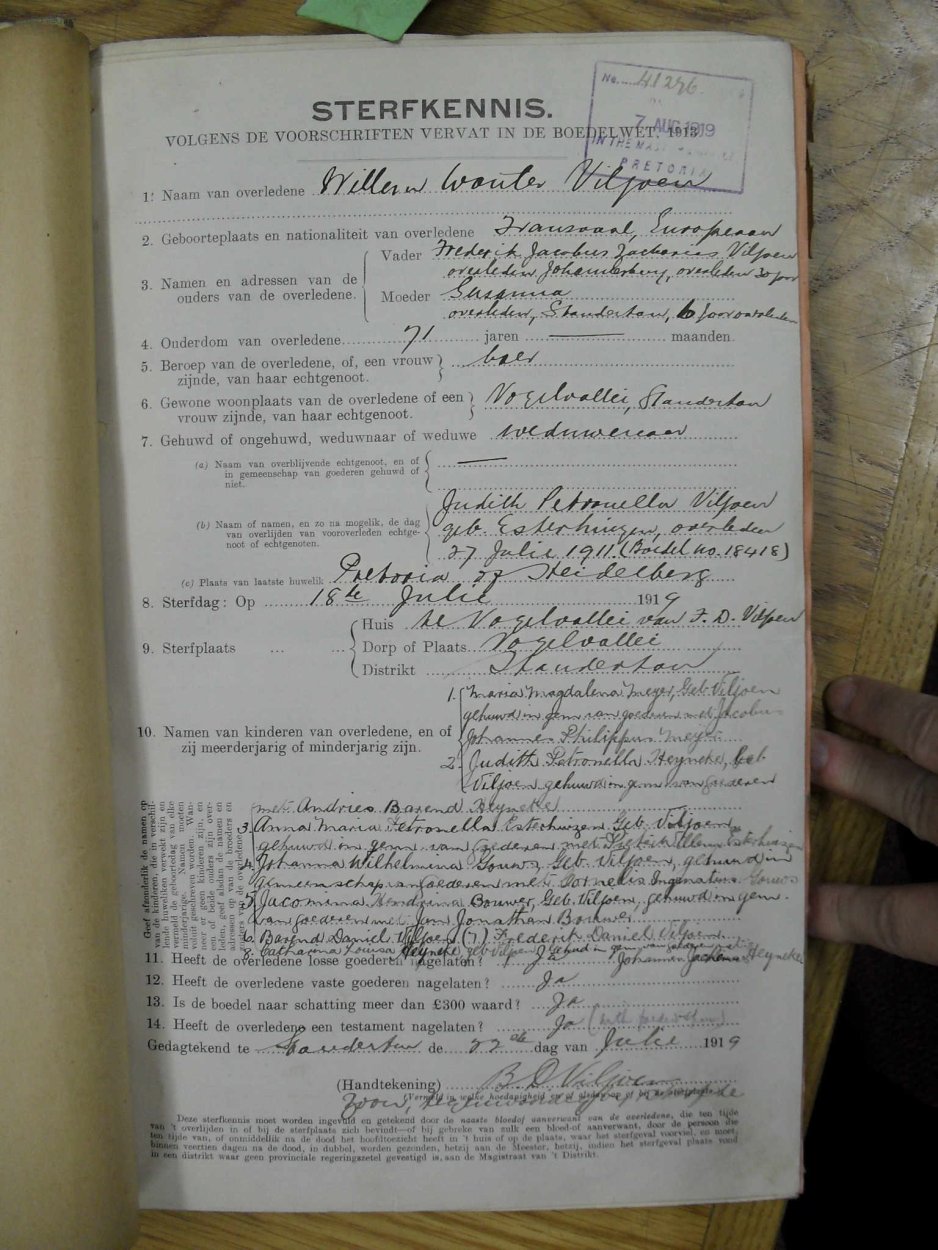 No. 41296
7 AUG 1919
IN THE MAS
PRETORIA
STERFKENNIS.
VOLGENS DE VOORSCHRIFTEN VERVAT IN DE BOEDELWET, 1913
1. Naam van overledene Willem Wouter Viljoen
2. Geboorteplaats en nationaliteit van overledene Transvaal, Europeaan
3. Namen en adressen van de ouders van de overledene.
Vader Frederik Jacobus Zacharias Viljoen
overleden Johannesburg, overleden 20 jaar
Moeder Susanna
overleden, Standerton, 6 jaar overleden
4. Ouderdom van overledene 71 jaren — maanden.
5. Beroep van de overledene, of, een vrouw zijnde, van haar echtgenoot. boer
6. Gewone woonplaats van de overledene of een vrouw zijnde, van haar echtgenoot. Vogelvallei, Standerton
7. Gehuwd of ongehuwd, weduwnaar of weduwe weduwenaar
(a) Naam van overblijvende echtgenoot, en of in gemeenschap van goederen gehuwd of niet. —
(b) Naam of namen, en zo na mogelik, de dag van overlijden van vooroverleden echtgenoot of echtgenoten.
Judith Petronella Viljoen
geb. Esterhuizen, overleden
27 Julie 1911. (Boedel no. 18418)
(c) Plaats van laatste huwelik Pretoria of Heidelberg
8. Sterfdag: Op 18de Julie 1919
9. Sterfplaats ... ...
Huis te Vogelvallei van F. D. Viljoen
Dorp of Plaats Vogelvallei
Distrikt Standerton
10. Namen van kinderen van overledene, en of zij meerderjarig of minderjarig zijn.
1. Maria Magdalena Meyer, Geb. Viljoen
gehuwd in gem van goederen met Jacobus
Johannes Philippus Meyer
2. Judith Petronella Heyneke, Geb.
Viljoen gehuwd in gem van Goederen
met Andries Barend Heyneke
3. Anna Maria Petronella Esterhuizen Geb. Viljoen
gehuwd in gem. van goederen met Esterhuizen
4. Johanna Wilhelmina Gouws Geb. Viljoen, gehuwd in
gemeenschap van Goederen met Cornelis Ingenatius Gouws
5. Jacomina Bouwer, Geb. Viljoen, gehuwd in gem.
van goederen met Jan Jonathan Bouwer
6. Barend Daniel Viljoen (7.) Frederik Daniel Viljoen
8. Catharina Louisa Heyneke, geb Viljoen gehuwd in gem van goederen met
Johannes Jochemus Heyneke
Geef afzonderlik de namen op van de kinderen, die in verschillende huweliken verwekt zijn en vermeld de geboortedag van elke minderjarige. Namen moeten voluit geschreven worden. Wanneer er geen kinderen zijn, en of beide ouders zijn overleden, geef alsdan de namen en adressen op van de broeders en zusters van de overledene.
11. Heeft de overledene losse goederen nagelaten? Ja
12. Heeft de overledene vaste goederen nagelaten? Ja
13. Is de boedel naar schatting meer dan £300 waard? Ja
14. Heeft de overledene een testament nagelaten? Ja
Gedagtekend te Standerton de 22ste dag van Julie 1919
(Handtekening) B D Viljoen
(Vermeld in welke hoedanigheid en of alsdan of bij
Zoon,
Deze sterfkennis moet worden ingevuld en getekend door de naaste bloedof aanverwant van de overledene, die ten tijde
van 't overlijden in of bij de sterfplaats zich bevindt—of bij gebreke van zulk een bloed-of aanverwant, door de persoon die
ten tijde van, of onmiddellik na de dood het hoofdtoezicht heeft in 't huis of op de plaats, waar het sterfgeval voorviel, en moet,
binnen veertien dagen na de dood, in dubbel, worden gezonden, hetzij aan de Meester, hetzij, indien het sterfgeval plaats vond
in een distrikt waar geen provinciale regeringszetel gevestigd is, aan de Magistraat van 't Distrikt.